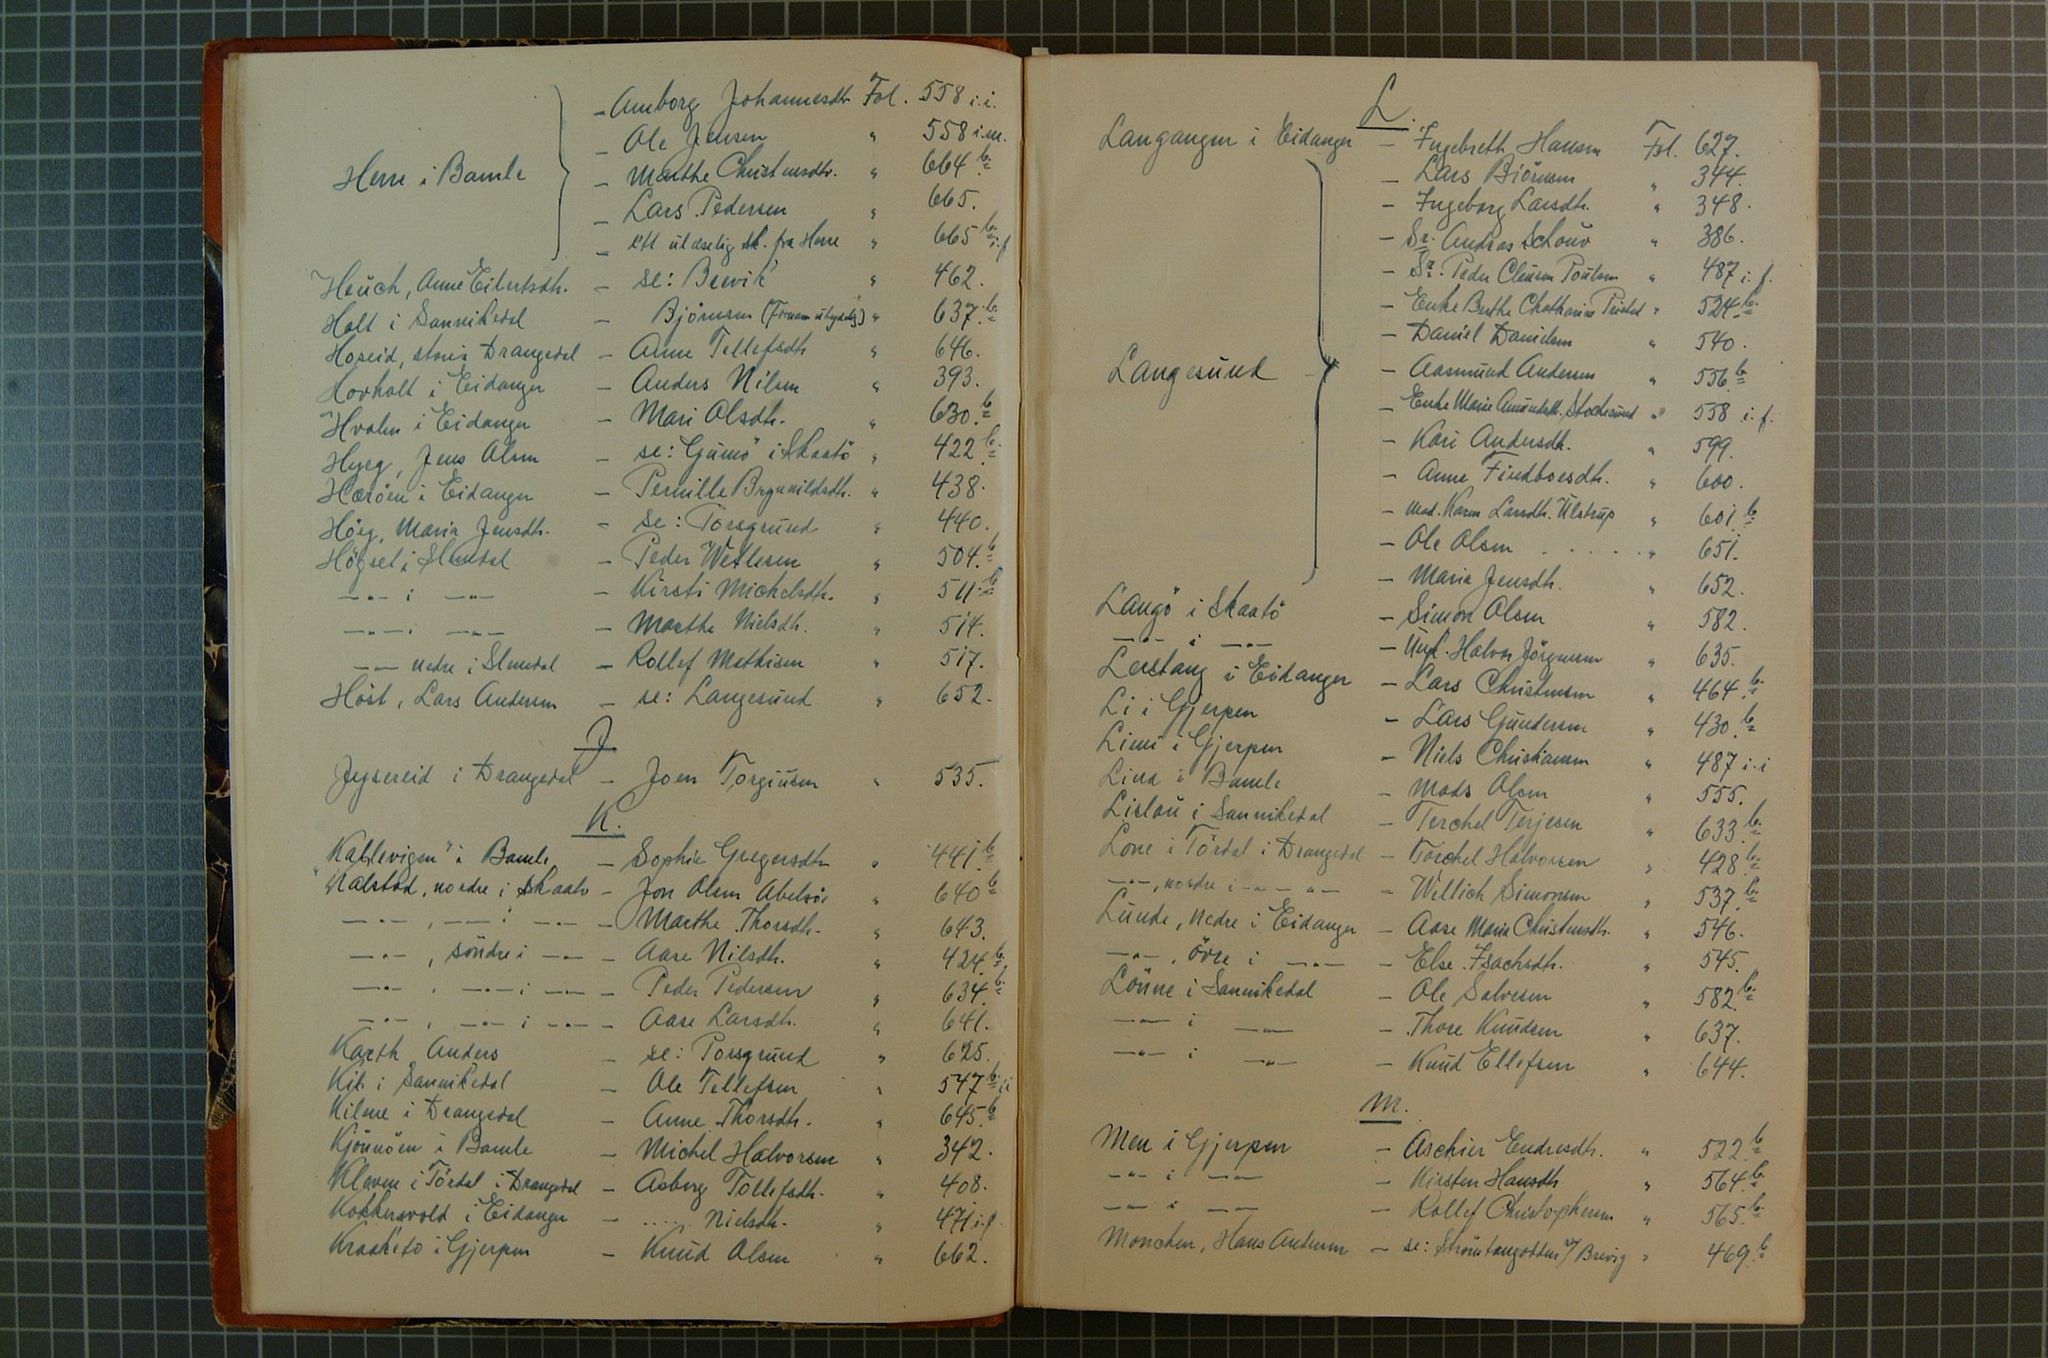 - Amborg Johannesdtr Fol. 558 i.i.
- Ole Jensen " 558 i.m.
Herre i Bamle - Marthe Christensdtr. " 664 b.
- Lars Pedersen " 665.
- ett ulæselig sk. fra Herre " 665 b. i.f
Heuch, Anne Eilertsdtr. - se: Brevik " 462.
Holt i Sannikedal - Björnsen (Fornavn utydelig) " 637. b.
Hoseid, store i Drangedal - Anne Tellefsdtr " 646.
Hovholt i Eidanger - Anders Nilsen " 393.
Hvalen i Eidanger - Mari Olsdtr. " 630. b
Hyeg, Jens Olsen - se: Gumö i Skaatö " 422. b.
Hæröen i Eidanger - Pernille Brynnildsdtr. " 438.
Höeg, Maria Jensdtr. - se: Porsgrund " 440.
Högset i Slemdal - Peder Wetlesen " 504. b
-"- i -"- - Kirsti Michelsdtr. " 511. b
-"- i -"- - Marthe Nielsdtr. " 514.
-"- nedre i Slemdal - Rollef Mathisen " 517.
Höst, Lars Andersen - se: Langesund " 652.
J
Jeysereid i Drangedal - Joen Torgiusen " 535.
K.
"Kallevigen" i Bamle - Sophie Gregersdtr " 441. b
Kalstad, nordre i Skaatö - Jon Olsen Abelsöe " 640 b
-"-, -"- i -"- - Marthe Thorsdtr. " 643.
-"-, söndre i -"- - Aase Nilsdtr. " 424. b.
-"-, -"- i -"- - Peder Pedersen " 634. b
-"-, -"- i -"- - Aase Larsdtr. " 641.
Karth Anders - se: Porsgrund " 625.
Kil i Sannikedal - Ole Tellefsen " 547 b. ii
Kilene i Drangedal - Anne Thorsdtr. " 645. b
Kjönnöen i Bamle - Michel Halvorsen " 342.
Kleven i Tördal i Drangedal - Asborg Tollefsdtr. " 408.
Kokkersvold i Eidanger - ..... Nielsdtr. " 471 i.f.
Kraaketo i Gjerpen - Knud Olsen " 662.
L.
Langangen i Eidanger - Ingebreth Hansen Fol. 627.
- Lars Biörnsen " 344.
- Ingeborg Larsdtr. " 348.
- Sr. Andreas Schouv " 386.
- Sr. Peder Clausen Poulsen " 487 i.f.
- Enke Berthe Chatharine Pristed " 524. b.
- Daniel Danielsen " 540.
Langesund - Aasmund Andersen " 556 b
- Enke Marie Amundsdtr. Stochesund " 558 i.f.
- Kari Andersdtr. " 599.
- Anne Findboesdtr. " 600.
- Mad. Karen Larsdtr. Ulstrup " 601. b
- Ole Olsen . . . . . " 651.
- Maria Jensdtr. " 652.
Langö i Skaatö - Simon Olsen " 582.
-"- i -"- - Ung. Halvor Jörgensen " 635.
Lerstang i Eidanger - Lars Christensen " 464. b.
Li i Gjerpen - Lars Gundersen " 430. b
Limi i Gjerpen - Niels Christiansen " 487 i.i
Lina i Bamle - Mads Olsen " 555.
Lislau i Sannikedal - Terchel Terjesen " 633. b
Lone i Tördal i Drangedal - Torchel Halvorsen " 428. b
-"-, nordre i -"- -"- - Wellich Simonsen " 537. b.
Lunde, nedre i Eidanger - Aase Marie Christensdtr. " 546.
-"-, övre i -"- - Else Isachsdtr. " 545.
Lönne i Sannikedal - Ole Salvesen " 582. b.
-"- i -"- - Thore Knudsen " 637.
-"- i -"- - Knud Ellefsen " 644.
M.
Men i Gjerpen - Aschier Endresdtr. " 522. b
-"- i -"- - Kirsten Hansdtr " 564. b.
-"- i -"- - Rollef Christophersen " 565. b.
Monchen, Hans Andersen - se: Strömtangodden v/ Brevig " 469. b